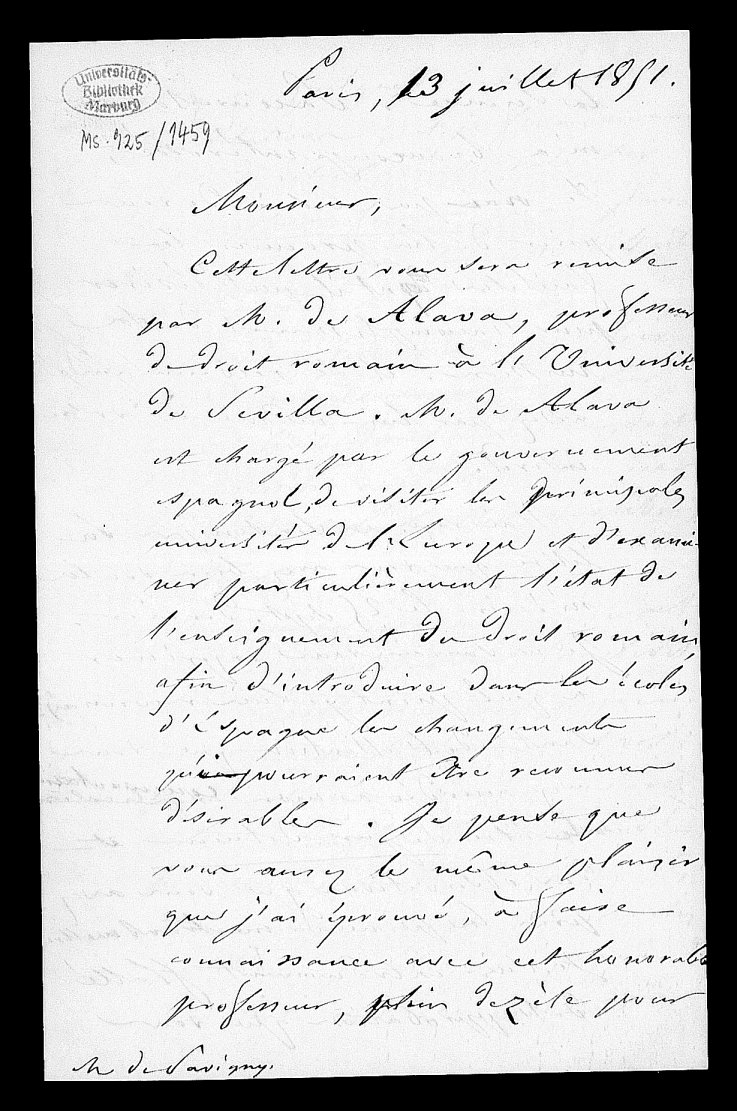 Universitäts-
Bibliothek
Marburg
Ms. 925/1459
Paris, 13 juillet 1851.
Monsieur,
Cette lettre vous sera remise
par M. de Alava, professeur
de droit romain à l'Université
de Sevilla. M. de Alava
est chargé par le gouvernement
espagnol, de visiter les principales
universités de l'Europe et d'exami-
ner particulièrement l'état de
l'enseignement du droit romain,
afin d'introduire dans les écoles
d'Espagne les changements
qui pourraient être reconnus
désirables. Je pense que
vous aurez le même plaisir
que j'ai éprouvé, à faire
connaissance avec cet honorable
professeur, plein de zèle pour
M. de Savigny.